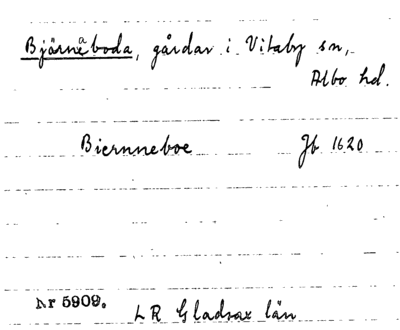 Bjärnaboda, gårdar i Vitaby sn,
Albo hd.
Biernneboe Jb 1620
Nr 5909.
LR Gladsax län